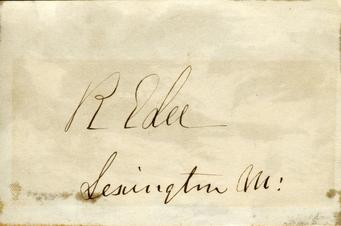 R Edee
Lexington M: